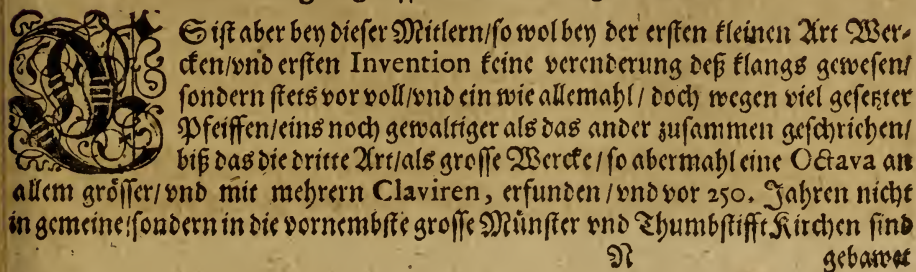 ES ist aber bey dieser Mitlern/so wol bey der ersten kleinen Art Wer-
cken/vnd ersten Invention keine verenderung deß klangs gewesen/
sondern stets vor voll/vnd ein wie allemahl/ doch wegen viel gesetzter
Pfeiffen/eins noch gewaltiger als das ander zusammen geschriehen/
biß das die dritte Art/als grosse Wercke/so abermahl eine Octava an
allem grösser/vnd mit mehrern Claviren, erfunden/vnd vor 250. Jahren nicht
in gemeine/sondern in die vornembste grosse Münster vnd Thumbstifft Kirchen sind
N gebawet